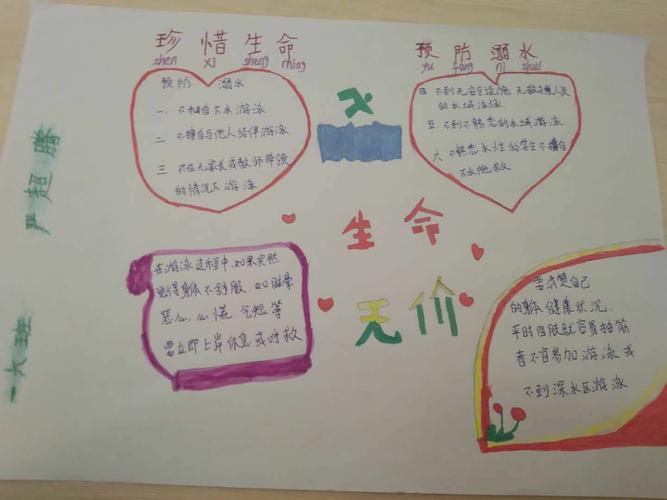 珍惜生命
zhen xi sheng ming
预防溺水
yu fang ni shui
预防 溺水
一、不私自下水游泳
二 不擅自与他人结伴游泳
三 不在无家长或教师带领
的情况下游泳
四 不到无安全设施 无救援人员
的水域游泳
五 不到不熟悉的水域游泳
六 不熟悉水性的学生不擅自
下水施救
生命
无价
在游泳过程中,如果突然
觉得身体不舒服,如眩晕
恶心,心慌,气短等
要立即上岸休息或呼救
要清楚自己
的身体健康状况
平时四肢就容易抽筋
者不宜参加游泳或
不到深水区游泳
严超腾
一六班